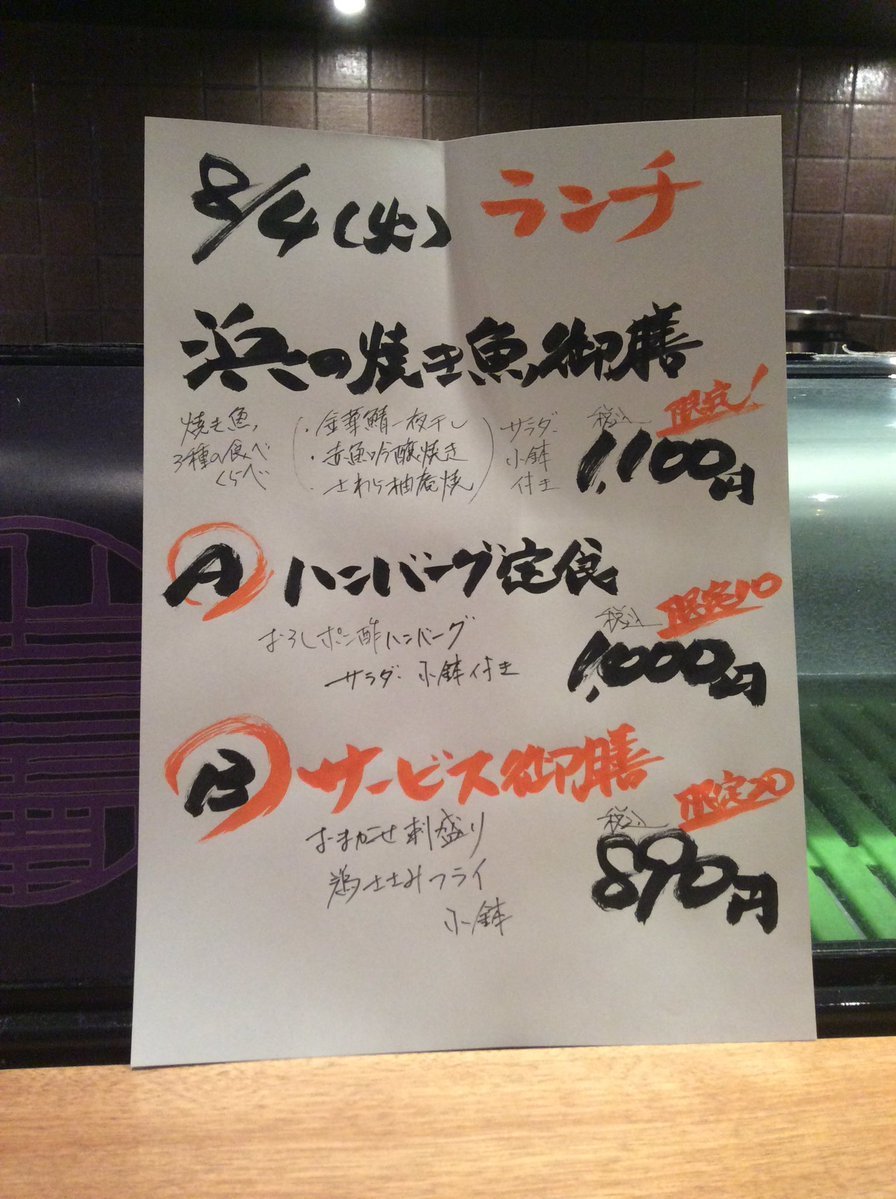 8/4(火) ランチ
浜の焼き魚御膳
焼き魚、
3種の食べ
くらべ
・金華鯖一夜干し
・赤魚吟醸焼き
・さわら柚庵焼
サラダ・
小鉢
付き
限定!
税込
1,100円
A ハンバーグ定食
おろしポン酢ハンバーグ
サラダ・小鉢付き
限定10
税込
1,000円
B サービス御膳
おまかせ刺盛り
鶏ささみフライ
小鉢
限定20
税込
890円